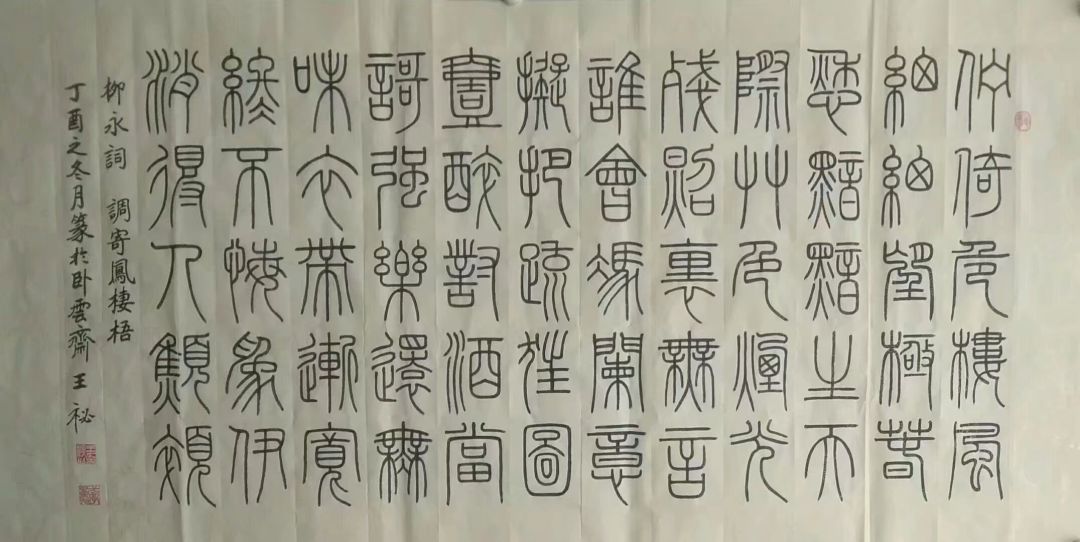 佇倚危樓風
細細望極春
愁黯黯生天
際草色煙光
殘照裏無言
誰會憑闌意
擬把疏狂圖
壹醉對酒當
歌強樂還無
味衣帶漸寬
終不悔為伊
消得人憔悴
柳永詞 調寄鳳棲梧
丁酉之冬月篆於卧雲齋 王祕